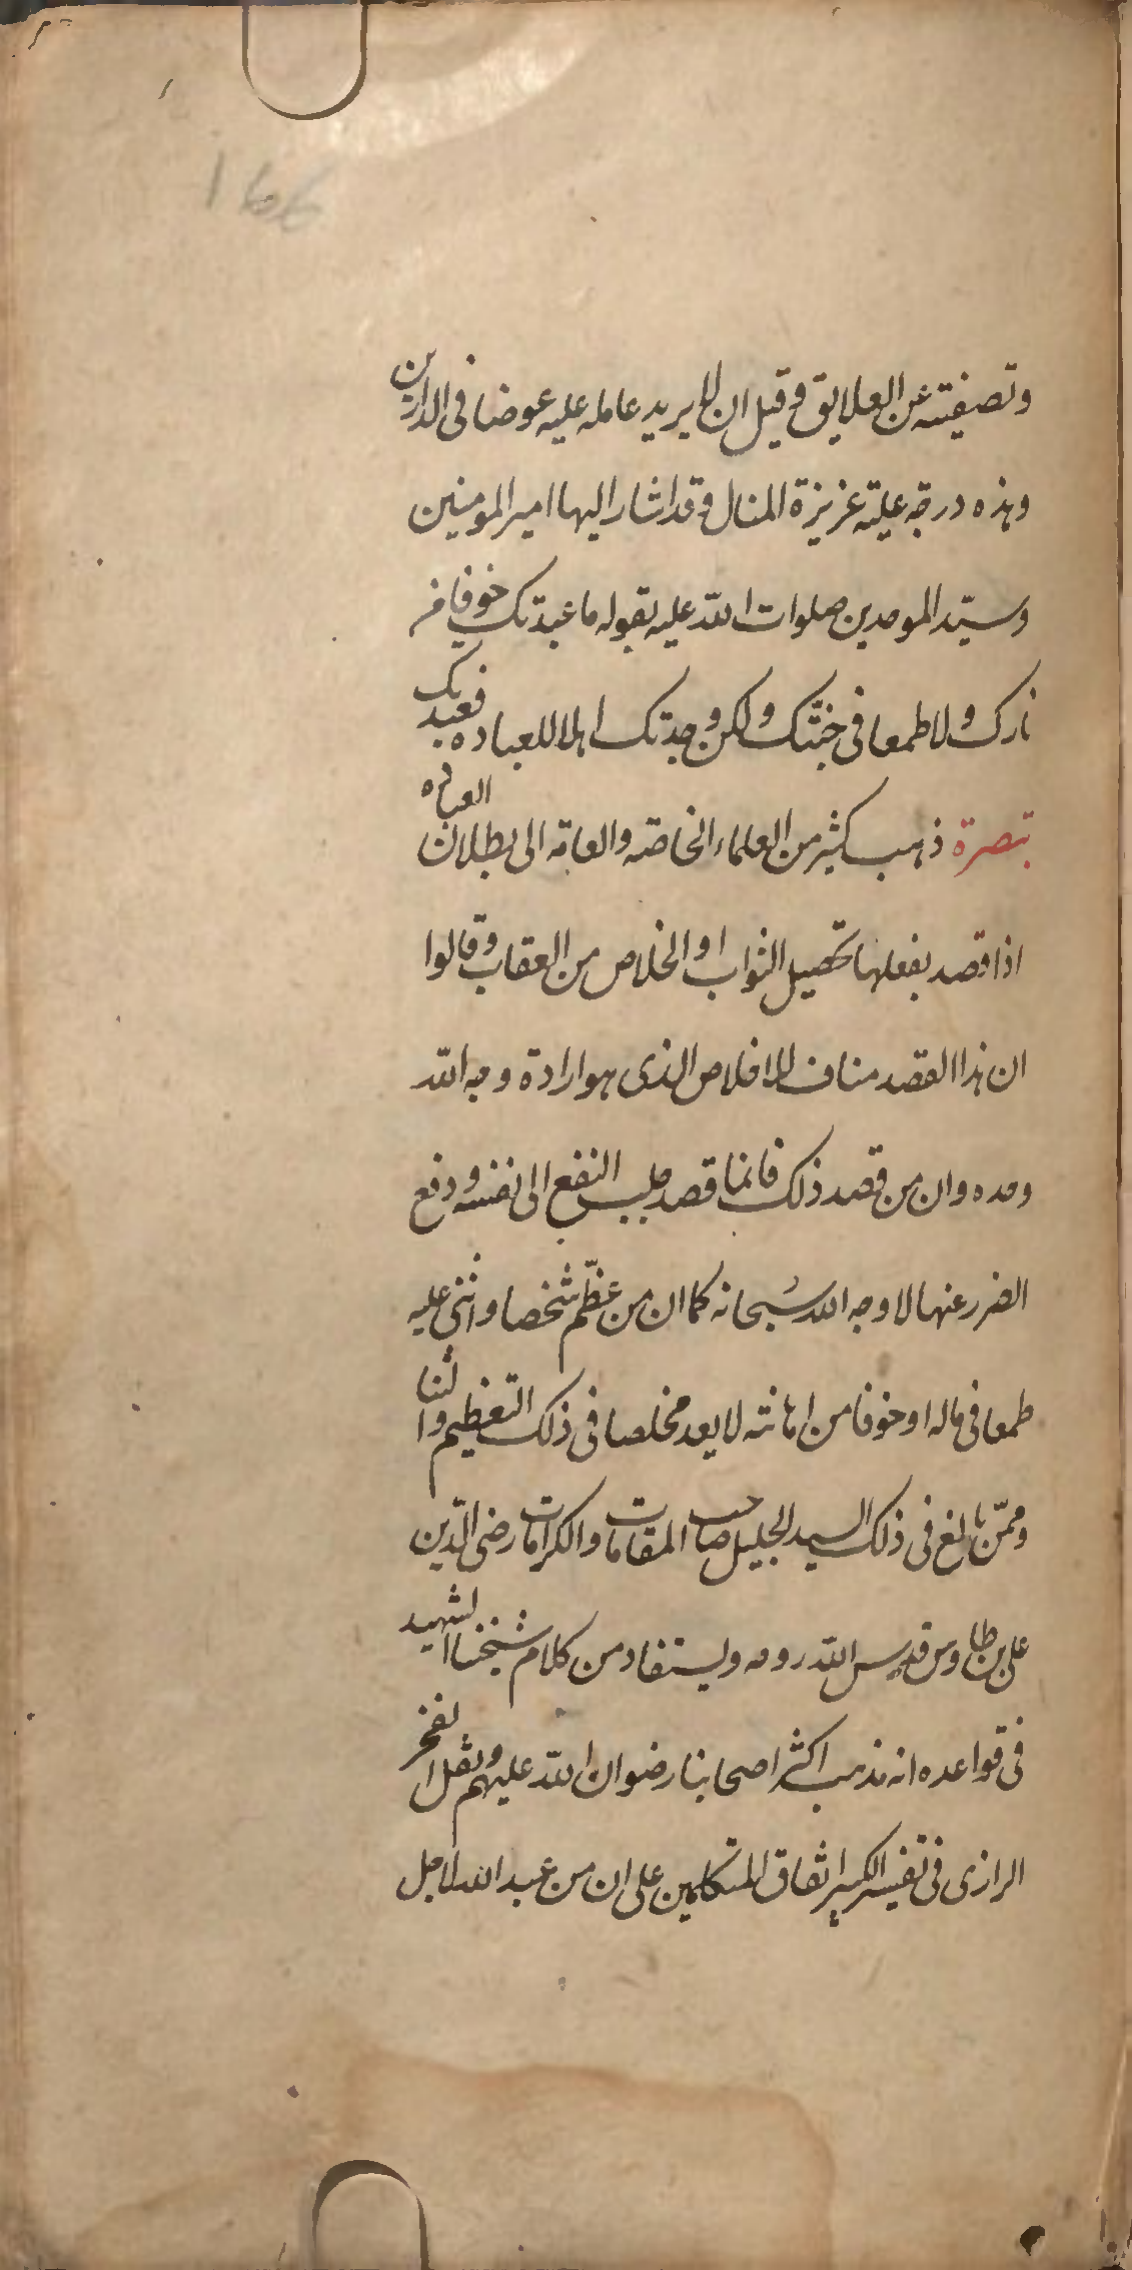 166
وتصفيته عن العلايق وقيل ان لا يريد عامله عليه عوضا فى الدارين
وهذه درجة علية عزيزة المنال وقد اشار اليها امير المومنين
وسيّد الموحدين صلوات اللّه عليه بقوله ما عبدتك خوفا من
نارك ولا طمعا فى جنّتك ولكن وجدتك اهلا للعباده فعبدتك
تبصرة ذهب كثير من العلماء الخاصّة والعامّة الى بطلان العباده
اذا قصد بفعلها تحصيل الثواب او الخلاص من العقاب وقالوا
ان هذا القصد مناف للاخلاص الذى هو ارادة وجه اللّه
وحده وان من قصد ذلك فانما قصد جلب النفع الى نفسه ودفع
الضرر عنها لا وجه اللّه سبحانه كما ان من عظّم شخصا واثنى عليه
طمعا فى ماله او خوفا من اهانته لا يعد مخلصا فى ذلك التعظيم والثنا
وممّن بالغ فى ذلك السيد الجليل صاحب المقامات والكرامات رضى الدّين
على بن طاوس قدس اللّه روحه ويستفاد من كلام شيخنا الشهيد
فى قواعده انه مذهب اكثر اصحابنا رضوان اللّه عليهم ونقل الفخر
الرازى فى تفسير الكبير اتفاق المتكلمين على ان من عبد اللّه لاجل